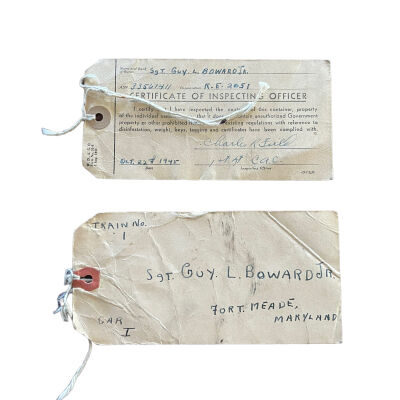 Sgt. Guy. L. Boward Jr.
ASN 33561411 R.E. 2051
CERTIFICATE OF INSPECTING OFFICER
I certify that I have inspected the contents of this container, property
of the individual that it does contain unauthorized Government
property or other prohibited existing regulations with reference to
disinfestation, weight, keys, tagging and certificates have been complied with.
Charles R.
Oct. 22 1945 1st Lt. C.A.C.
Date Inspecting Officer
TRAIN No.
1
Sgt. Guy. L. Boward Jr.
Fort. Meade,
Maryland
CAR
I